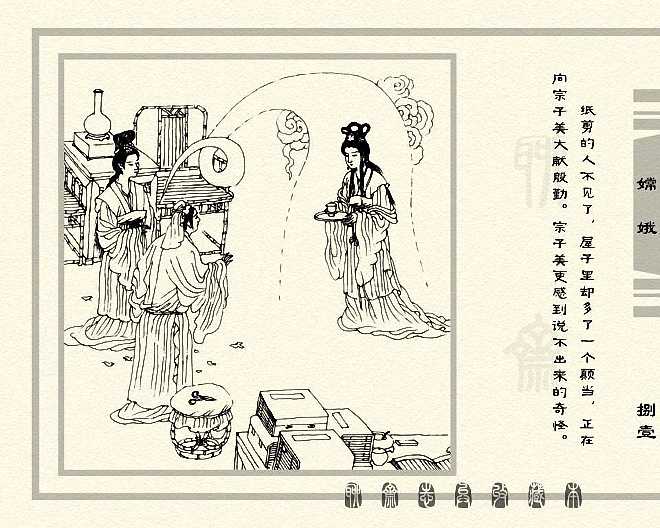 纸剪的人不见了，屋子里却多了一个颠当，正在
向宗子美大献殷勤。宗子美更感到说不出来的奇怪。
嫦娥
捌壹
聊斋志异收藏本